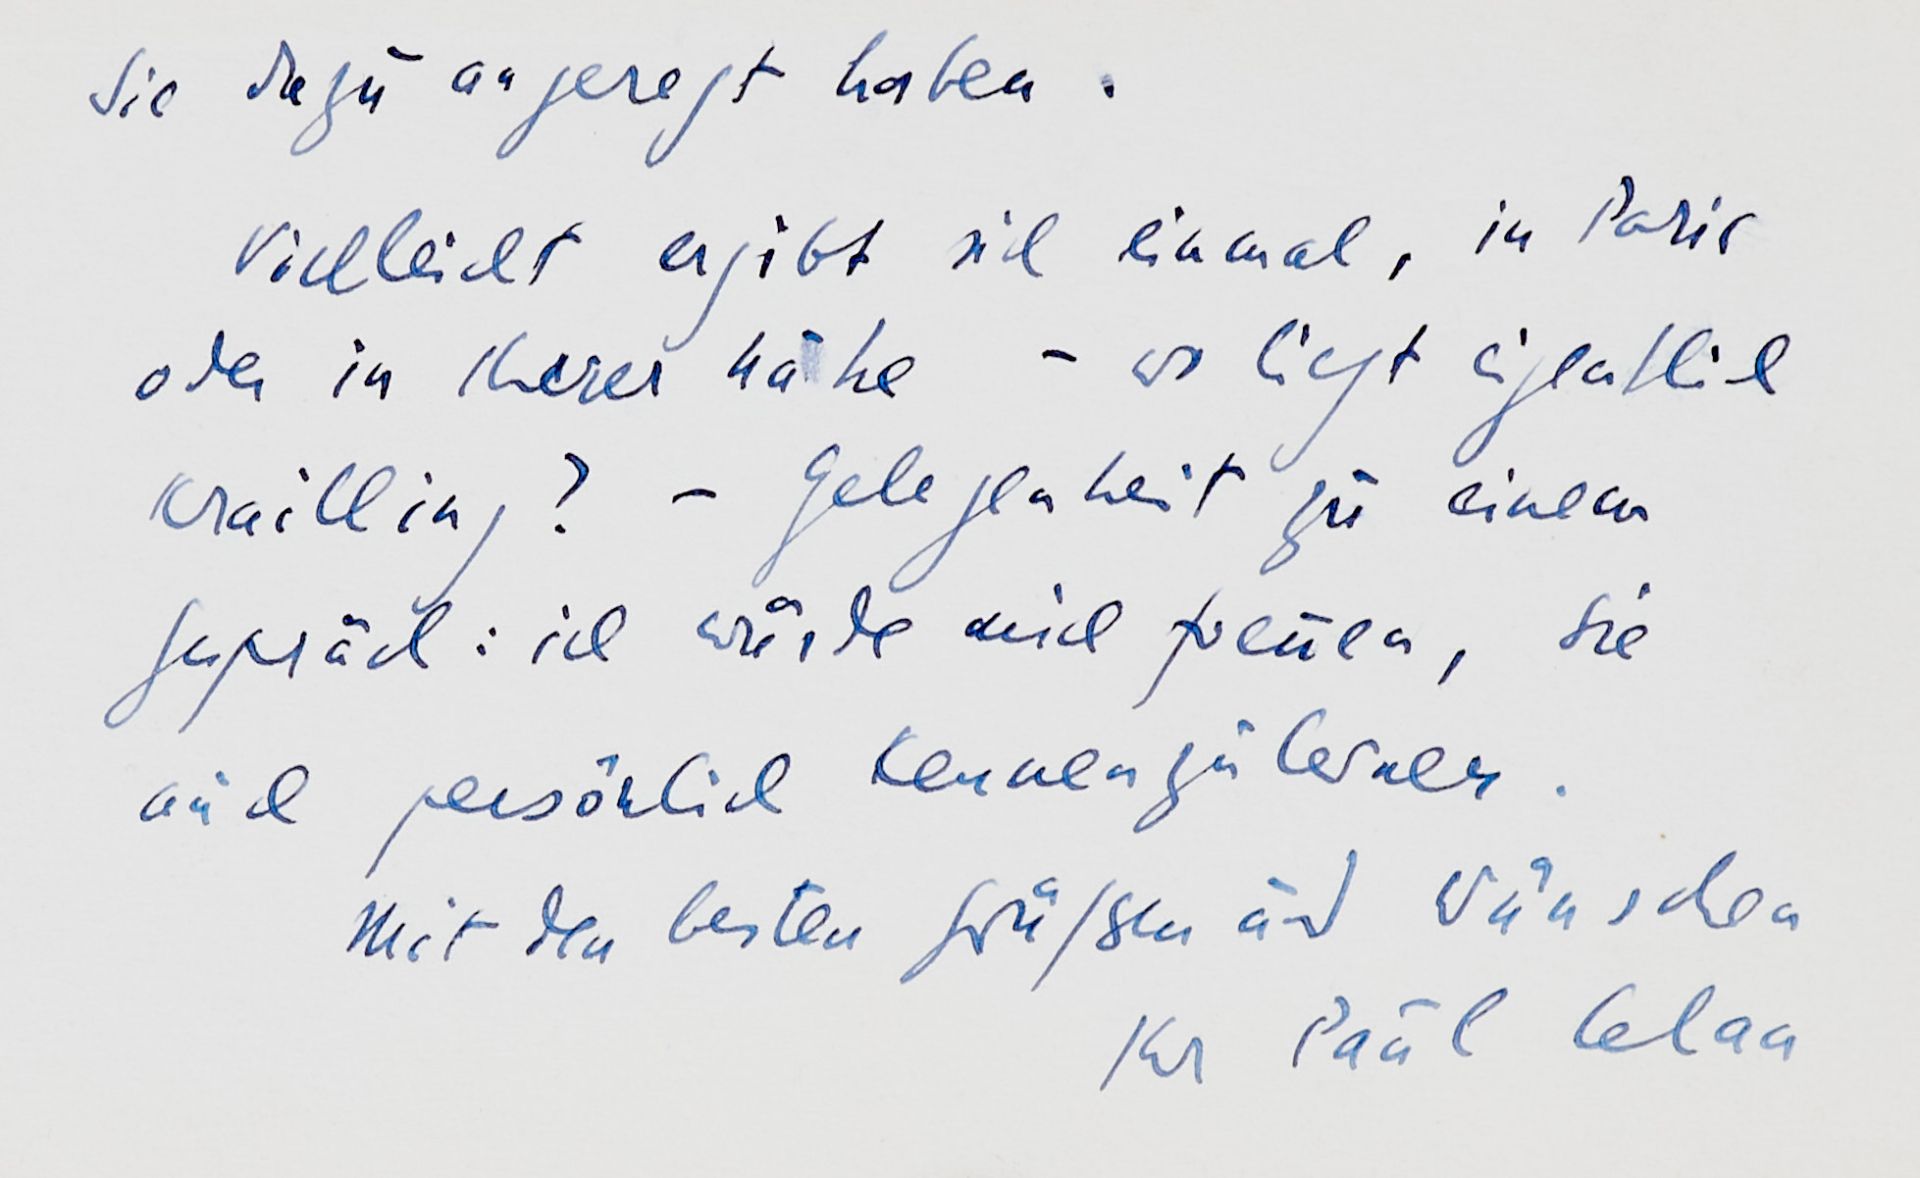 Sie dazu angeregt haben.
Vielleicht ergibt sich einmal, in Paris
oder in Ihrer Nähe – wo liegt eigentlich
Krailling? – Gelegenheit zu einem
Gespräch: ich würde mich freuen, Sie
auch persönlich kennenzulernen.
Mit den besten Grüßen und Wünschen
Ihr Paul Celan